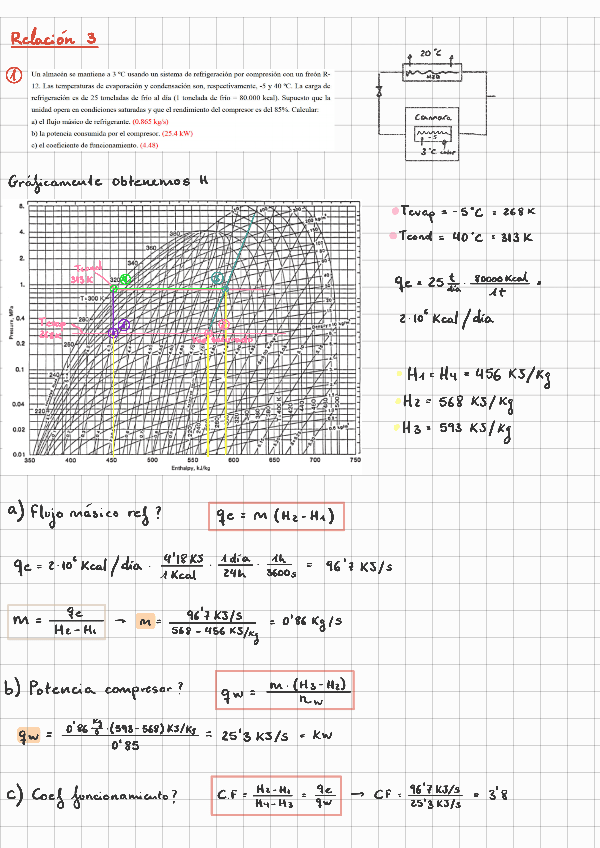 Relación 3
1
Un almacén se mantiene a 3 ºC usando un sistema de refrigeración por compresión con un freón R-
12. Las temperaturas de evaporación y condensación son, respectivamente, -5 y 40 ºC. La carga de
refrigeración es de 25 toneladas de frío al día (1 tonelada de frío = 80.000 kcal). Supuesto que la
unidad opera en condiciones saturadas y que el rendimiento del compresor es del 85%. Calcular:
a) el flujo másico de refrigerante. (0.865 kg/s)
b) la potencia consumida por el compresor. (25.4 kW)
c) el coeficiente de funcionamiento. (4.48)
20 ºC
H2O
Camara
-5
3 ºC
Gráficamente obtenemos H
Tcond
313 K
T = 300 K
Pressure, MPa
8.
4.
2.
1.
0.4
0.2
0.1
0.04
0.02
0.01
350 400 450 500 550 600 650 700 750
Enthalpy, kJ/kg
Tevap = -5ºC = 268 K
Tcond = 40ºC = 313 K
qe = 25 t/día · 80000 Kcal/1t =
2·10⁶ Kcal/día
H1 = H4 = 456 KJ/Kg
H2 = 568 KJ/Kg
H3 = 593 KJ/Kg
a) flujo másico ref?
qe = m (H2 - H1)
qe = 2·10⁶ Kcal/día · 4'18 KJ/1 Kcal · 1 día/24h · 1h/3600s = 96'7 KJ/s
m = qe/H2 - H1 → m = 96'7 KJ/s/568 - 456 KJ/Kg = 0'86 Kg/s
b) Potencia compresor?
qw = m·(H3-H2)/nw
qw = 0'86 Kg/s · (593 - 568) KJ/Kg/0'85 = 25'3 KJ/s = KW
c) Coef funcionamiento?
C.F = H2 - H1/H4 - H3 = qe/qw → CF = 96'7 KJ/s/25'3 KJ/s = 3'8